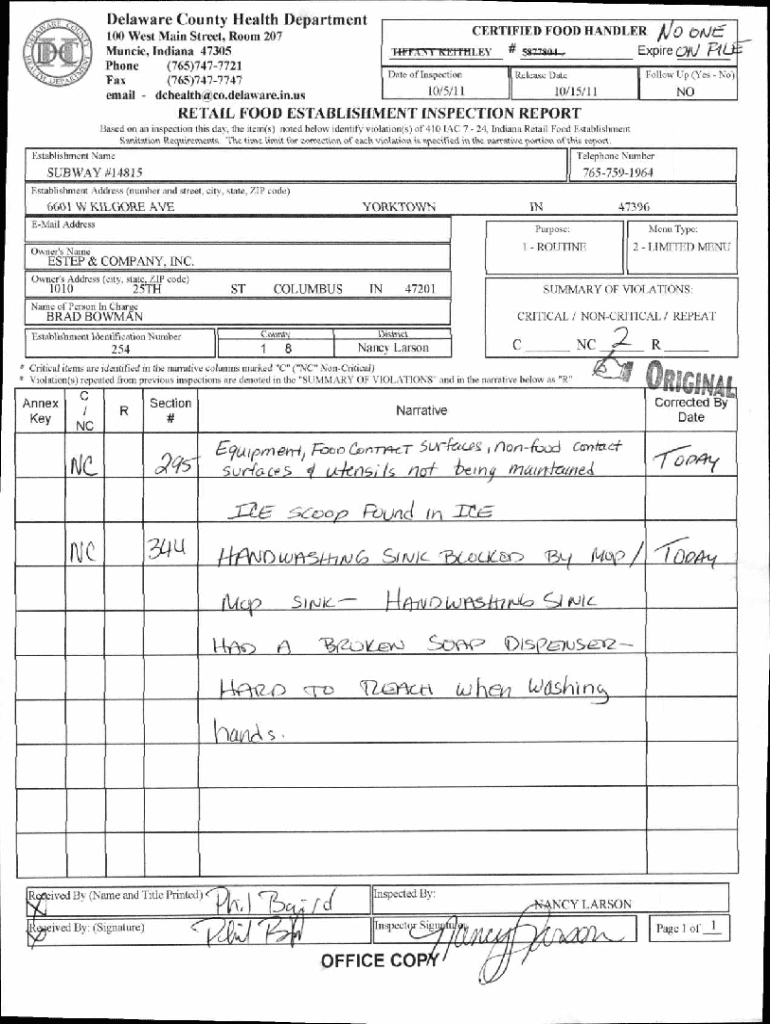 Delaware County Health Department
100 West Main Street, Room 207
Muncie, Indiana 47305
Phone (765)747-7721
Fax (765)747-7747
email - dchealth@co.delaware.in.us
CERTIFIED FOOD HANDLER NO ONE
TIFFANY KEITHLEY # 5877804 Expire ON FILE
Date of Inspection Release Date Follow Up (Yes - No)
10/5/11 10/15/11 NO
RETAIL FOOD ESTABLISHMENT INSPECTION REPORT
Based on an inspection this day, the item(s) noted below identify violation(s) of 410 IAC 7 - 24, Indiana Retail Food Establishment
Sanitation Requirements. The time limit for correction of each violation is specified in the narrative portion of this report.
Establishment Name Telephone Number
SUBWAY #14815 765-759-1964
Establishment Address (number and street, city, state, ZIP code)
6601 W KILGORE AVE YORKTOWN IN 47396
E-Mail Address Purpose: Menu Type:
1 - ROUTINE 2 - LIMITED MENU
Owner's Name
ESTEP & COMPANY, INC.
Owner's Address (city, state, ZIP code) SUMMARY OF VIOLATIONS:
1010 25TH ST COLUMBUS IN 47201
Name of Person In Charge CRITICAL / NON-CRITICAL / REPEAT
BRAD BOWMAN
Establishment Identification Number County District
254 1 8 Nancy Larson C ____ NC 2 R ____
* Critical items are identified in the narrative columns marked "C" ("NC" Non-Critical)
* Violation(s) repeated from previous inspections are denoted in the "SUMMARY OF VIOLATIONS" and in the narrative below as "R"
ORIGINAL
Annex Key C / NC R Section # Narrative Corrected By Date
NC 295 Equipment, Food Contact surfaces, non-food contact TODAY
surfaces & utensils not being maintained
ICE scoop Found in ICE
NC 344 HANDWASHING SINK BLOCKED BY MOP/ TODAY
Mop SINK - HANDWASHING SINK
HAD A BROKEN SOAP DISPENSER-
HARD TO REACH when washing
hands.
Received By (Name and Title Printed) Phil Baird Inspected By:
NANCY LARSON
Received By: (Signature) Inspector Signature Nancy Larson Page 1 of 1
OFFICE COPY